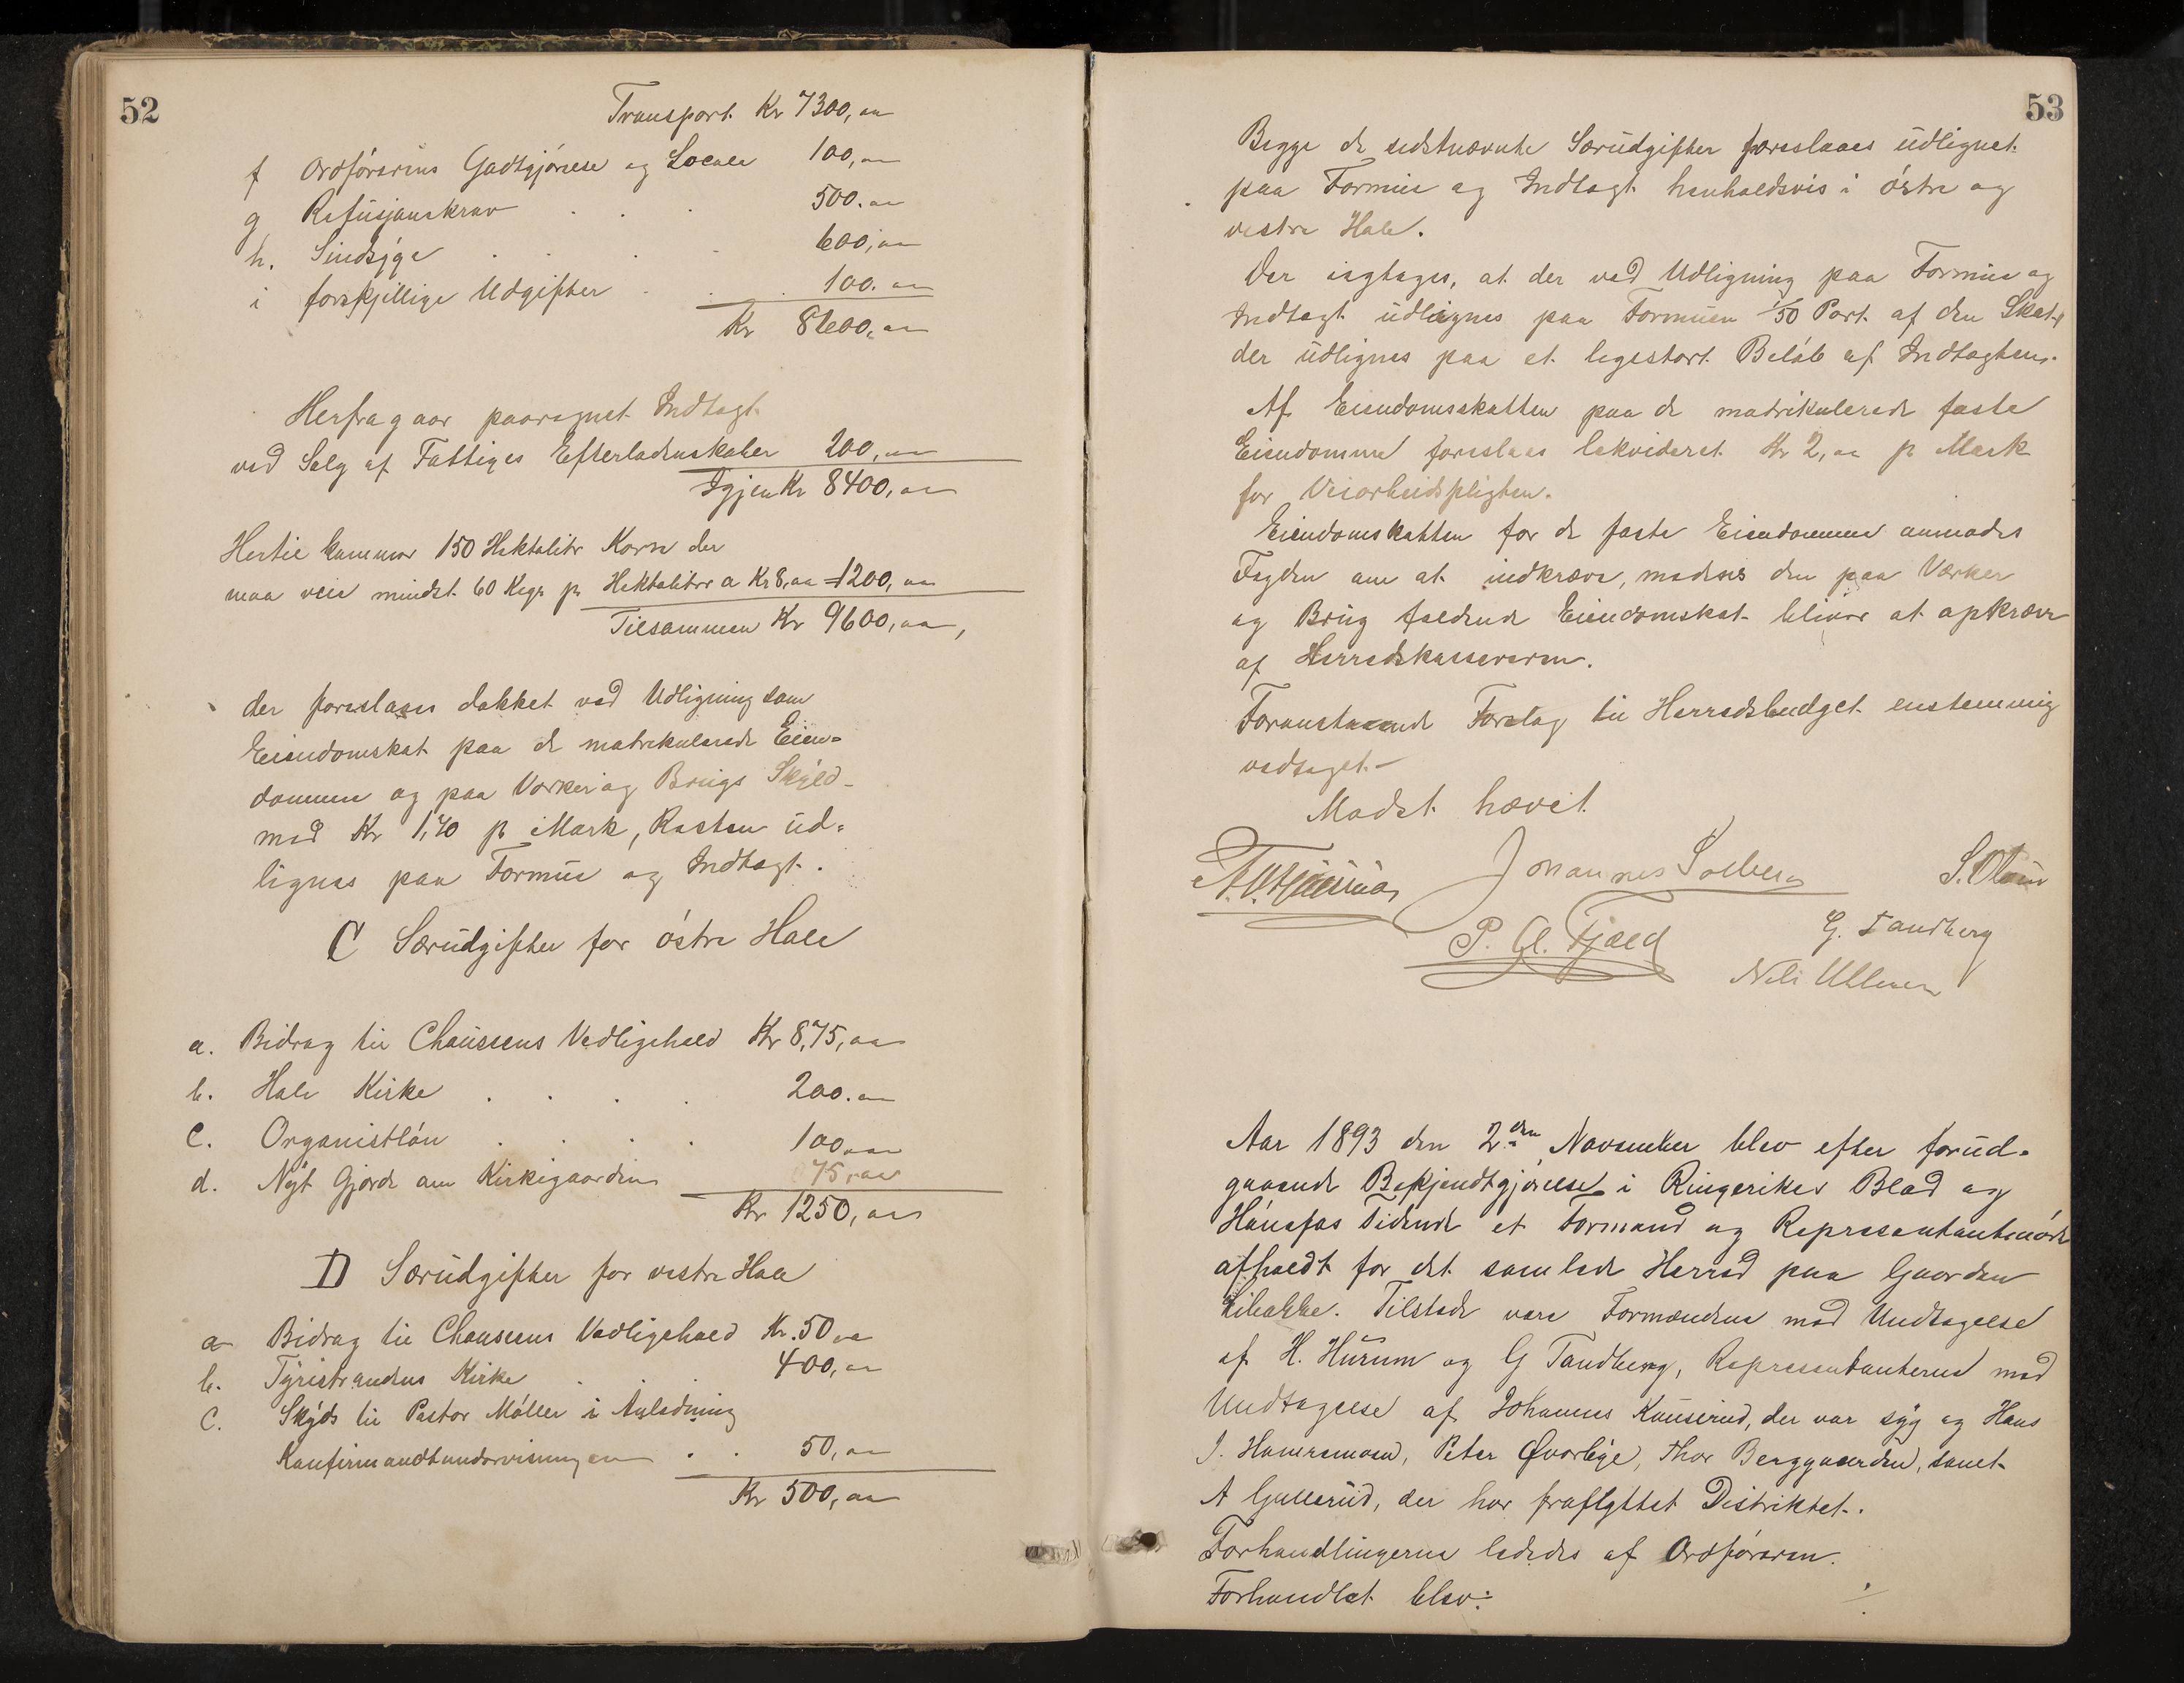 52
Transport Kr 7300,00
f Ordførerens Godtgjørelse og Locale 100,00
g Refusjonskrav . . . 500.00
h. Sindsyge . . . 600,00
i forskjellige Udgifter . . . 100.00
Kr 8600,00
Herfra gaar paaregnet Indtægt
ved Salg af Fattiges Efterladenskaber 200,00
Igjen Kr 8400,00
Hertil kommer 150 Hektoliter Korn der
maa veie mindst 60 Kegr pr Hektoliter a Kr 8,00 = 1200,00
Tilsammen Kr 9600,00,
der foreslaaes dækket ved Udligning som
Eiendomskat paa de matrikulerede Eien=
domme og paa Værker og Brugs Skyld
med Kr 1,70 pr Mark, Resten ud=
lignes paa Formue og Indtægt.
C Særudgifter for østre Hole
a. Bidrag til Chausseens Vedligehold Kr 8,75,00
b. Hole Kirke . . . . 200.00
C. Organistløn . . . . 100,00
d. Nyt Gjærde om Kirkegaarden 75,00
Kr 1250,00
D Særudgifter for vestre Hole
a Bidrag til Chausseens Vedligehold Kr. 50 00
b. Tyristrandens Kirke . . . 400,00
C. Skyds til Pastor Møller i Anledning
Konfirmandtundervisningen . . 50,00
Kr 500,00
53
Begge de sidstnævnte Særudgifter foreslaaes udlignet
paa Formue og Indtægt henholdsvis i østre og
vestre Hole.
Der iagtages, at der ved Udligning paa Formue og
Indtægt udlignes paa Formuen 1/50 Part af den Skat,
der udlignes paa et ligestort Beløb af Indtægten.
Af Eiendomsskatten paa de matrikulerede faste
Eiendomme foreslaaes lekvideret Kr 2,00 pr Mark
for Veiarbeidspligten.
Eiendomskatten for de faste Eiendomme anmodes
Fogden om at indkræve, medens den paa Værker
og Brug faldende Eiendomskat bliver at opkræve
af Herredskassereren.
Foranstaaende Forslag til Herredsbudget enstemmig
vedtaget.—
Mødet hævet
Johannes Solberg
S. Olsen
P. Gl. Fjeld
G. Tandberg
Nils Uhlesen
Aar 1893 den 2den November blev efter forud=
gaaende Bekjendtgjørelse i Ringerikes Blad og
Hønefos Tidende et Formand og Representantmøde
afholdt for det samlede Herred paa Gaarden
Libakke. Tilstede vare Formændene med Undtagelse
af H. Hurum og G Tandberg, Representanterne med
Undtagelse af Johannes Knuserud, der var syg og Hans
J. Hamersmoen, Peter Øverbye, Thor Berggaarden, samt
A Gullerud, der har fraflyttet Distriktet.
Forhandlingerne lededes af Ordføreren.
Forhandlet blev: